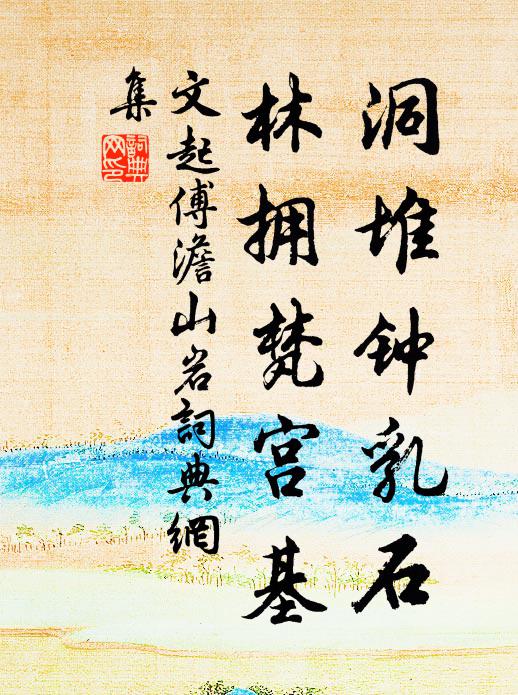 洞堆钟乳石
林拥梵宫基
文起傅澹山岩詞典網
集
詞典网印